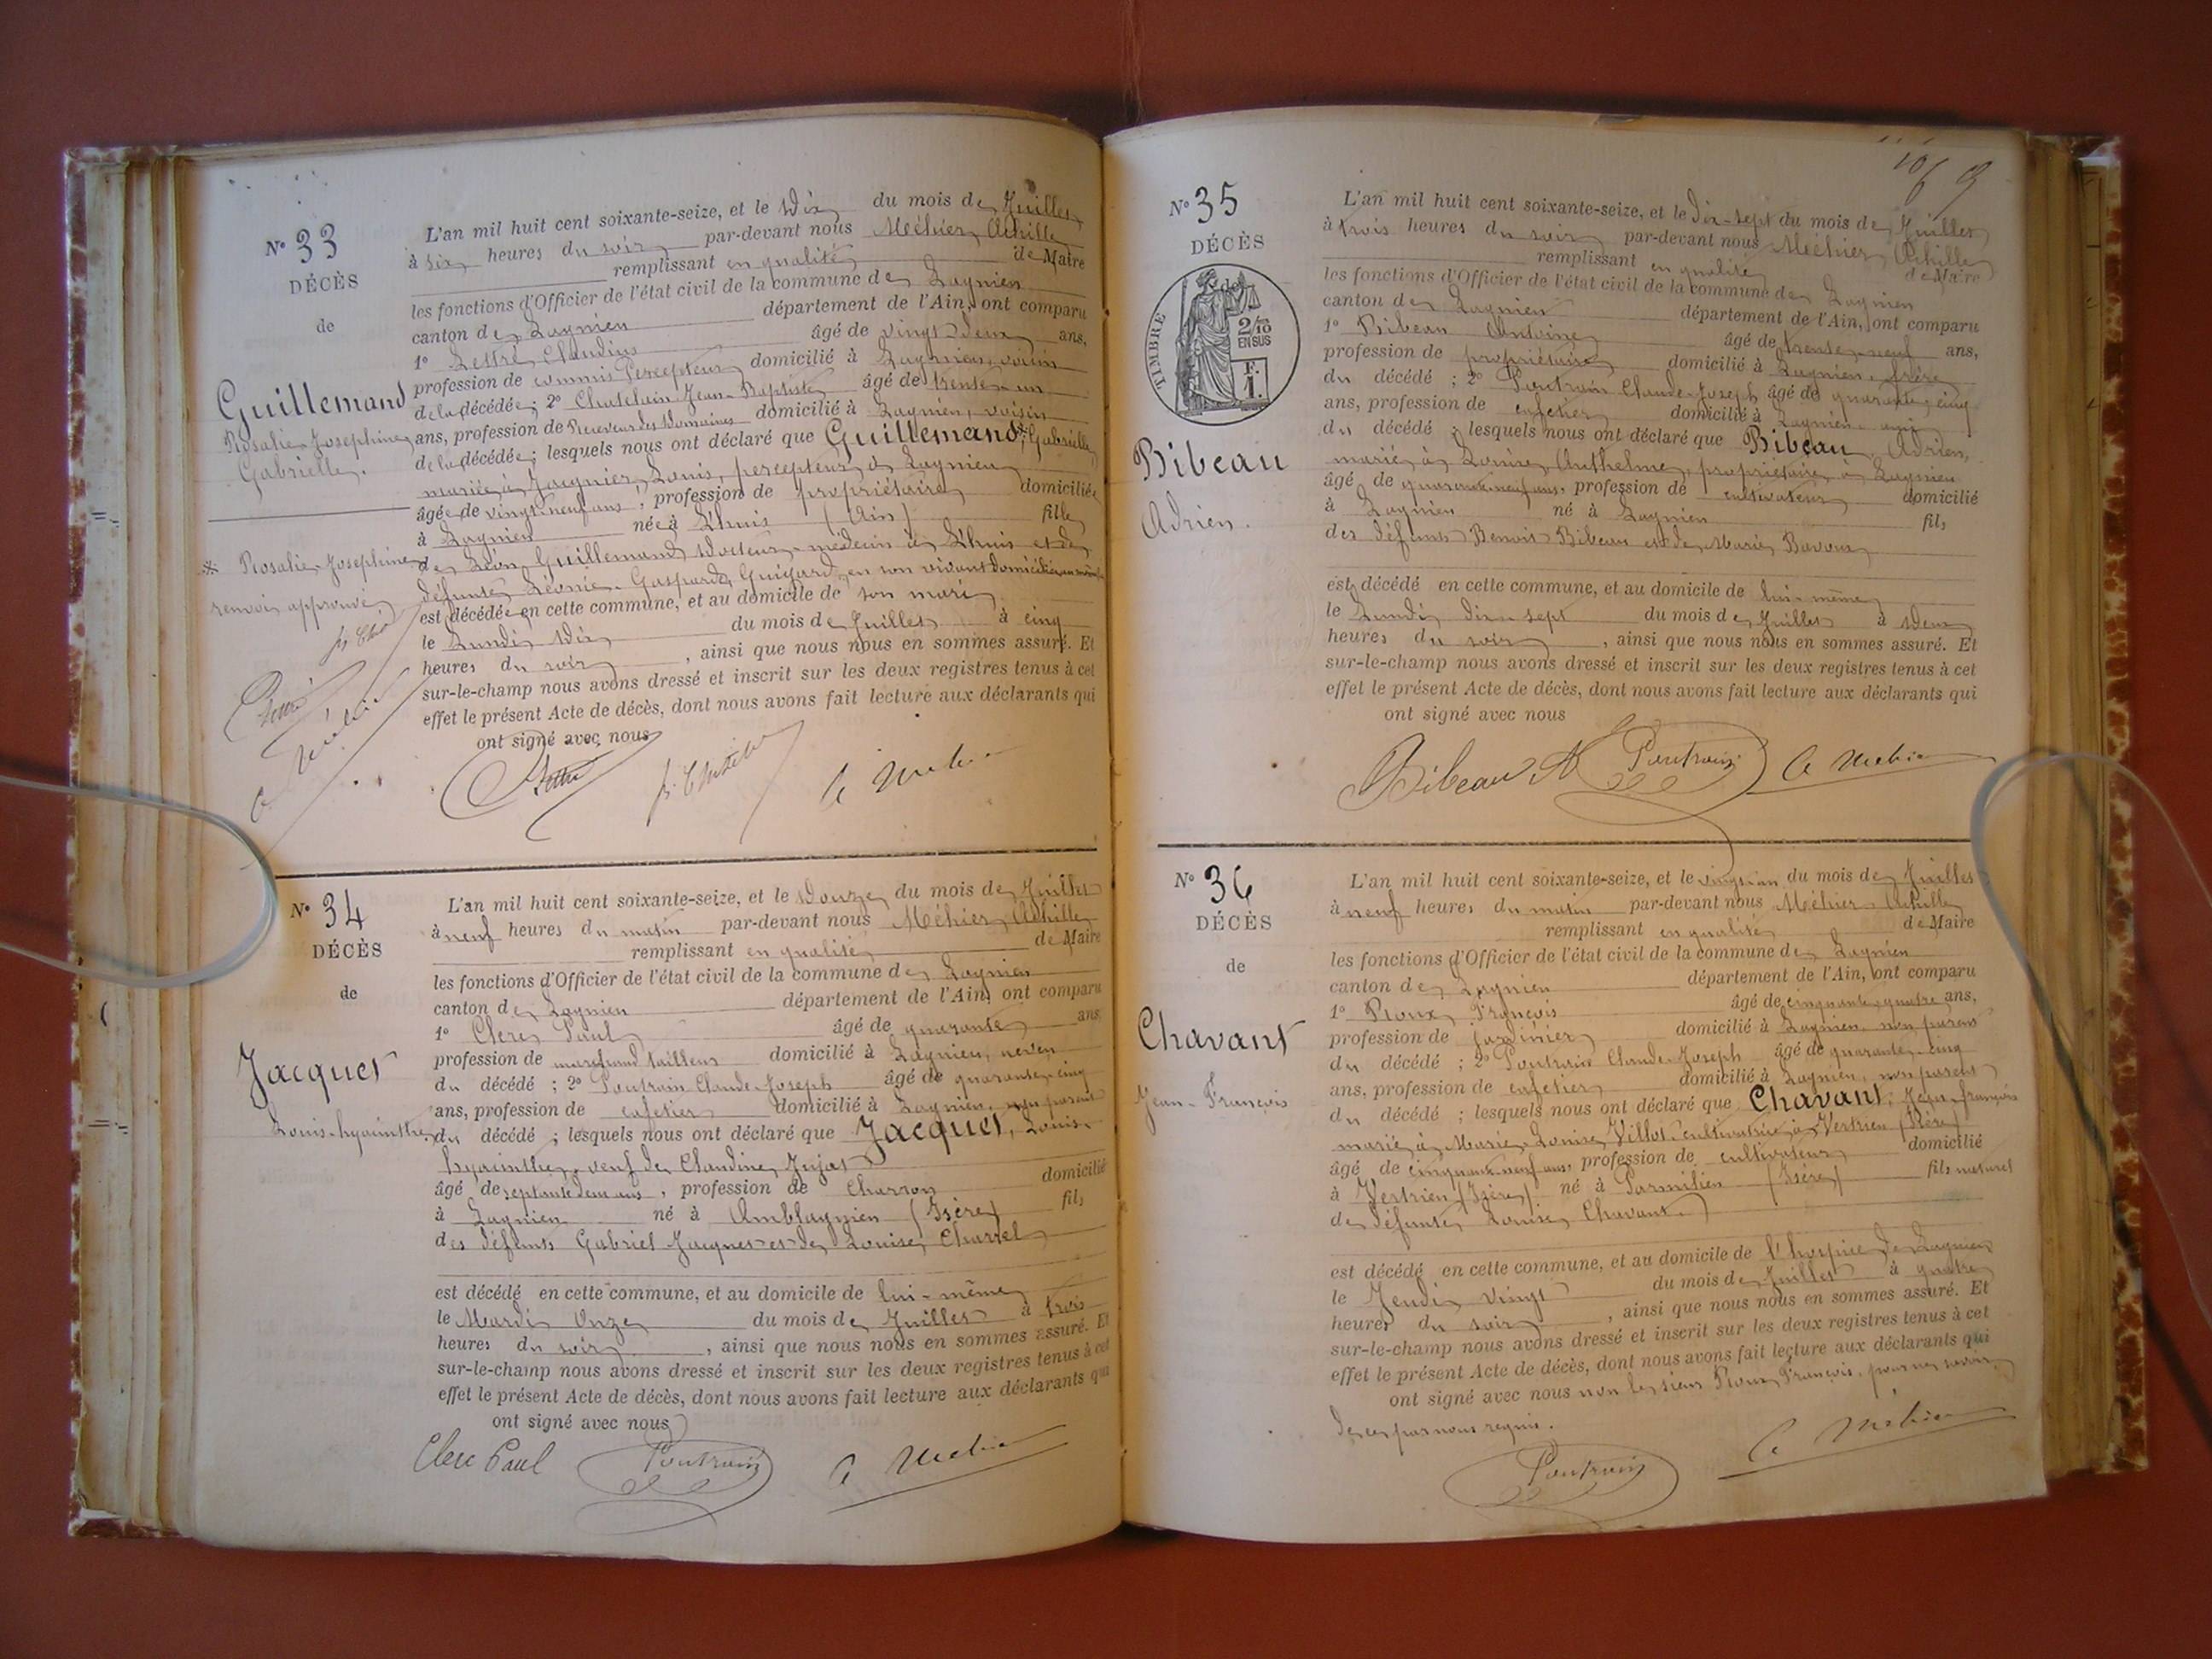 N° 33
DÉCÈS
de
Guillemand
Rosalie Josephine
Gabrielle.
L'an mil huit cent soixante-seize, et le Dix du mois de Juillet
à six heures du soir par-devant nous Méhier, Achille
remplissant en qualité de Maire
les fonctions d'Officier de l'état civil de la commune de Lagnieu
canton de Lagnieu département de l'Ain, ont comparu
1° Lettré Claudius âgé de vingt deux ans,
profession de commis Percepteur domicilié à Lagnieu, voisin
de la décédée ; 2° Chatelain Jean-Baptiste âgé de trente-un
ans, profession de Receveur des Domaines domicilié à Lagnieu, voisin
de la décédée ; lesquels nous ont déclaré que Guillemand,* Gabrielle
mariée à Jacquier, Louis, percepteur à Lagnieu
âgée de vingt-neuf ans, profession de propriétaire domiciliée
à Lagnieu née à L'huis (Ain) fille
de Léon Guillemand Docteur-médecin à L'huis et de
défunte Léonie Gasparde Guigard, en son vivant domiciliée
est décédée en cette commune, et au domicile de son mari
le Lundi Dix du mois de Juillet à cinq
heures du soir, ainsi que nous nous en sommes assuré. Et
sur-le-champ nous avons dressé et inscrit sur les deux registres tenus à cet
effet le présent Acte de décès, dont nous avons fait lecture aux déclarants qui
ont signé avec nous
* Rosalie Josephine
renvoi approuvé
N° 34
DÉCÈS
de
Jacquet
Louis-hyacinthe
L'an mil huit cent soixante-seize, et le Douze du mois de Juillet
à neuf heures du matin par-devant nous Méhier, Achille
remplissant en qualité de Maire
les fonctions d'Officier de l'état civil de la commune de Lagnieu
canton de Lagnieu département de l'Ain, ont comparu
1° Clerc Paul âgé de quarante ans,
profession de marchand tailleur domicilié à Lagnieu, neveu
du décédé ; 2° Poutrain Claude-Joseph âgé de quarante-cinq
ans, profession de cafetier domicilié à Lagnieu, non parent
du décédé ; lesquels nous ont déclaré que Jacquet, Louis-
hyacinthe, veuf de Claudine Jujat
âgé de septante deux ans, profession de Charron domicilié
à Lagnieu né à Amblagnieu (Isère) fils
des défunts Gabriel Jacquet et de Louise Charrel
est décédé en cette commune, et au domicile de lui-même
le Mardi Onze du mois de Juillet à trois
heures du soir, ainsi que nous nous en sommes assuré. Et
sur-le-champ nous avons dressé et inscrit sur les deux registres tenus à cet
effet le présent Acte de décès, dont nous avons fait lecture aux déclarants qui
ont signé avec nous
Clerc Paul Poutrain A Mehier
N° 35
DÉCÈS
de
TIMBRE
2/10
EN SUS
F.
1.
Bibeau
Adrien.
L'an mil huit cent soixante-seize, et le dix-sept du mois de Juillet
à trois heures du soir par-devant nous Méhier, Achille
remplissant en qualité de Maire
les fonctions d'Officier de l'état civil de la commune de Lagnieu
canton de Lagnieu département de l'Ain, ont comparu
1° Bibeau Antoine âgé de trente-neuf ans,
profession de propriétaire domicilié à Lagnieu, frère
du décédé ; 2° Poutrain Claude-Joseph âgé de quarante-cinq
ans, profession de cafetier domicilié à Lagnieu, ami
du décédé ; lesquels nous ont déclaré que Bibeau, Adrien,
marié à Louise Anthelme, propriétaire à Lagnieu
âgé de quarante-neuf ans, profession de cultivateur domicilié
à Lagnieu né à Lagnieu fils
des défunts Benoit Bibeau et de Marie Bavoux
est décédé en cette commune, et au domicile de lui-même
le Lundi dix-sept du mois de Juillet à Deux
heures du soir, ainsi que nous nous en sommes assuré. Et
sur-le-champ nous avons dressé et inscrit sur les deux registres tenus à cet
effet le présent Acte de décès, dont nous avons fait lecture aux déclarants qui
ont signé avec nous
Bibeau A Poutrain A Mehier
N° 36
DÉCÈS
de
Chavant
Jean-François
L'an mil huit cent soixante-seize, et le vingt-un du mois de Juillet
à neuf heures du matin par-devant nous Méhier Achille
remplissant en qualité de Maire
les fonctions d'Officier de l'état civil de la commune de Lagnieu
canton de Lagnieu département de l'Ain, ont comparu
1° Proux François âgé de cinquante-quatre ans,
profession de jardinier domicilié à Lagnieu, non parent
du décédé ; 2° Poutrain Claude-Joseph âgé de quarante-cinq
ans, profession de cafetier domicilié à Lagnieu, non parent
du décédé ; lesquels nous ont déclaré que Chavant, Jean-françois
marié à Marie-Louise Villot cultivatrice à Vertrieu (Isère)
âgé de cinquante-neuf ans, profession de cultivateur domicilié
à Vertrieu (Isère) né à Parmilieu (Isère) fils naturel
de défunte Louise Chavant.
est décédé en cette commune, et au domicile de l'hospice de Lagnieu
le Jeudi vingt du mois de Juillet à quatre
heures du soir, ainsi que nous nous en sommes assuré. Et
sur-le-champ nous avons dressé et inscrit sur les deux registres tenus à cet
effet le présent Acte de décès, dont nous avons fait lecture aux déclarants qui
ont signé avec nous non le sieur Proux François, pour ne savoir,
de ce par nous requis.
Poutrain A Mehier